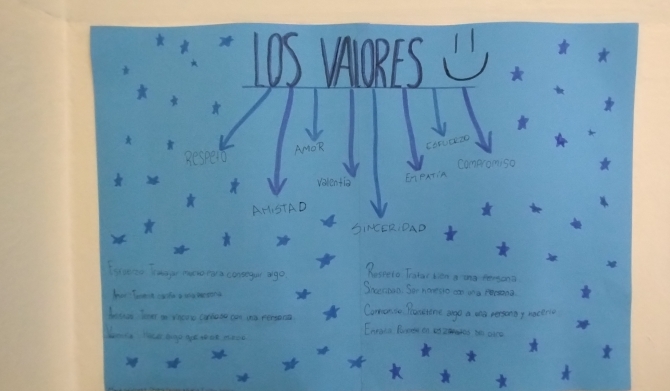 LOS VALORES
RESPETO
AMOR
Valentía
ESFUERZO
EMPATÍA
COMPROMISO
AMISTAD
SINCERIDAD
Esfuerzo: Trabajar mucho para conseguir algo.
Amor: Tenerle cariño a una persona
Amistad: Tener un vínculo con una persona
Valentía: algo que
Respeto: Tratar bien a una persona
Sinceridad: Ser honesto con una persona.
Compromiso: Prometerle algo a una persona y hacerlo.
Empatía: Ponerte en los zapatos del otro